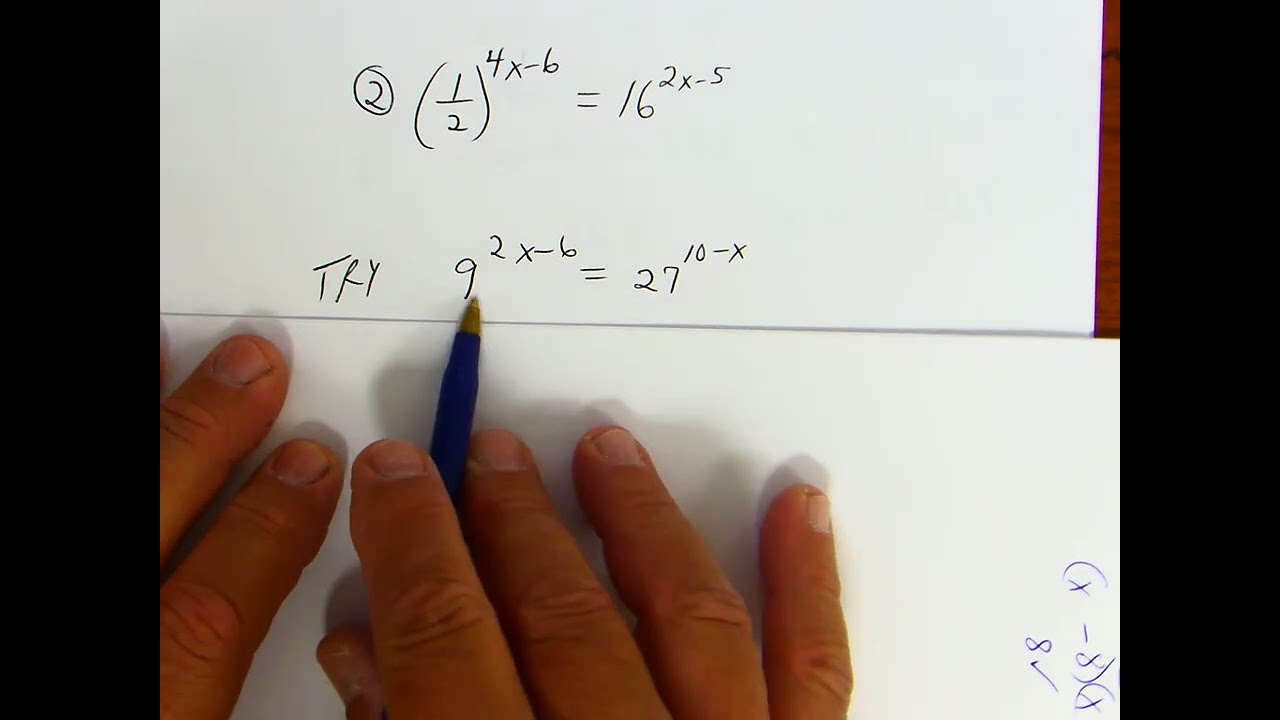 ② (1/2)^(4x-6) = 16^(2x-5)
TRY 9^(2x-6) = 27^(10-x)